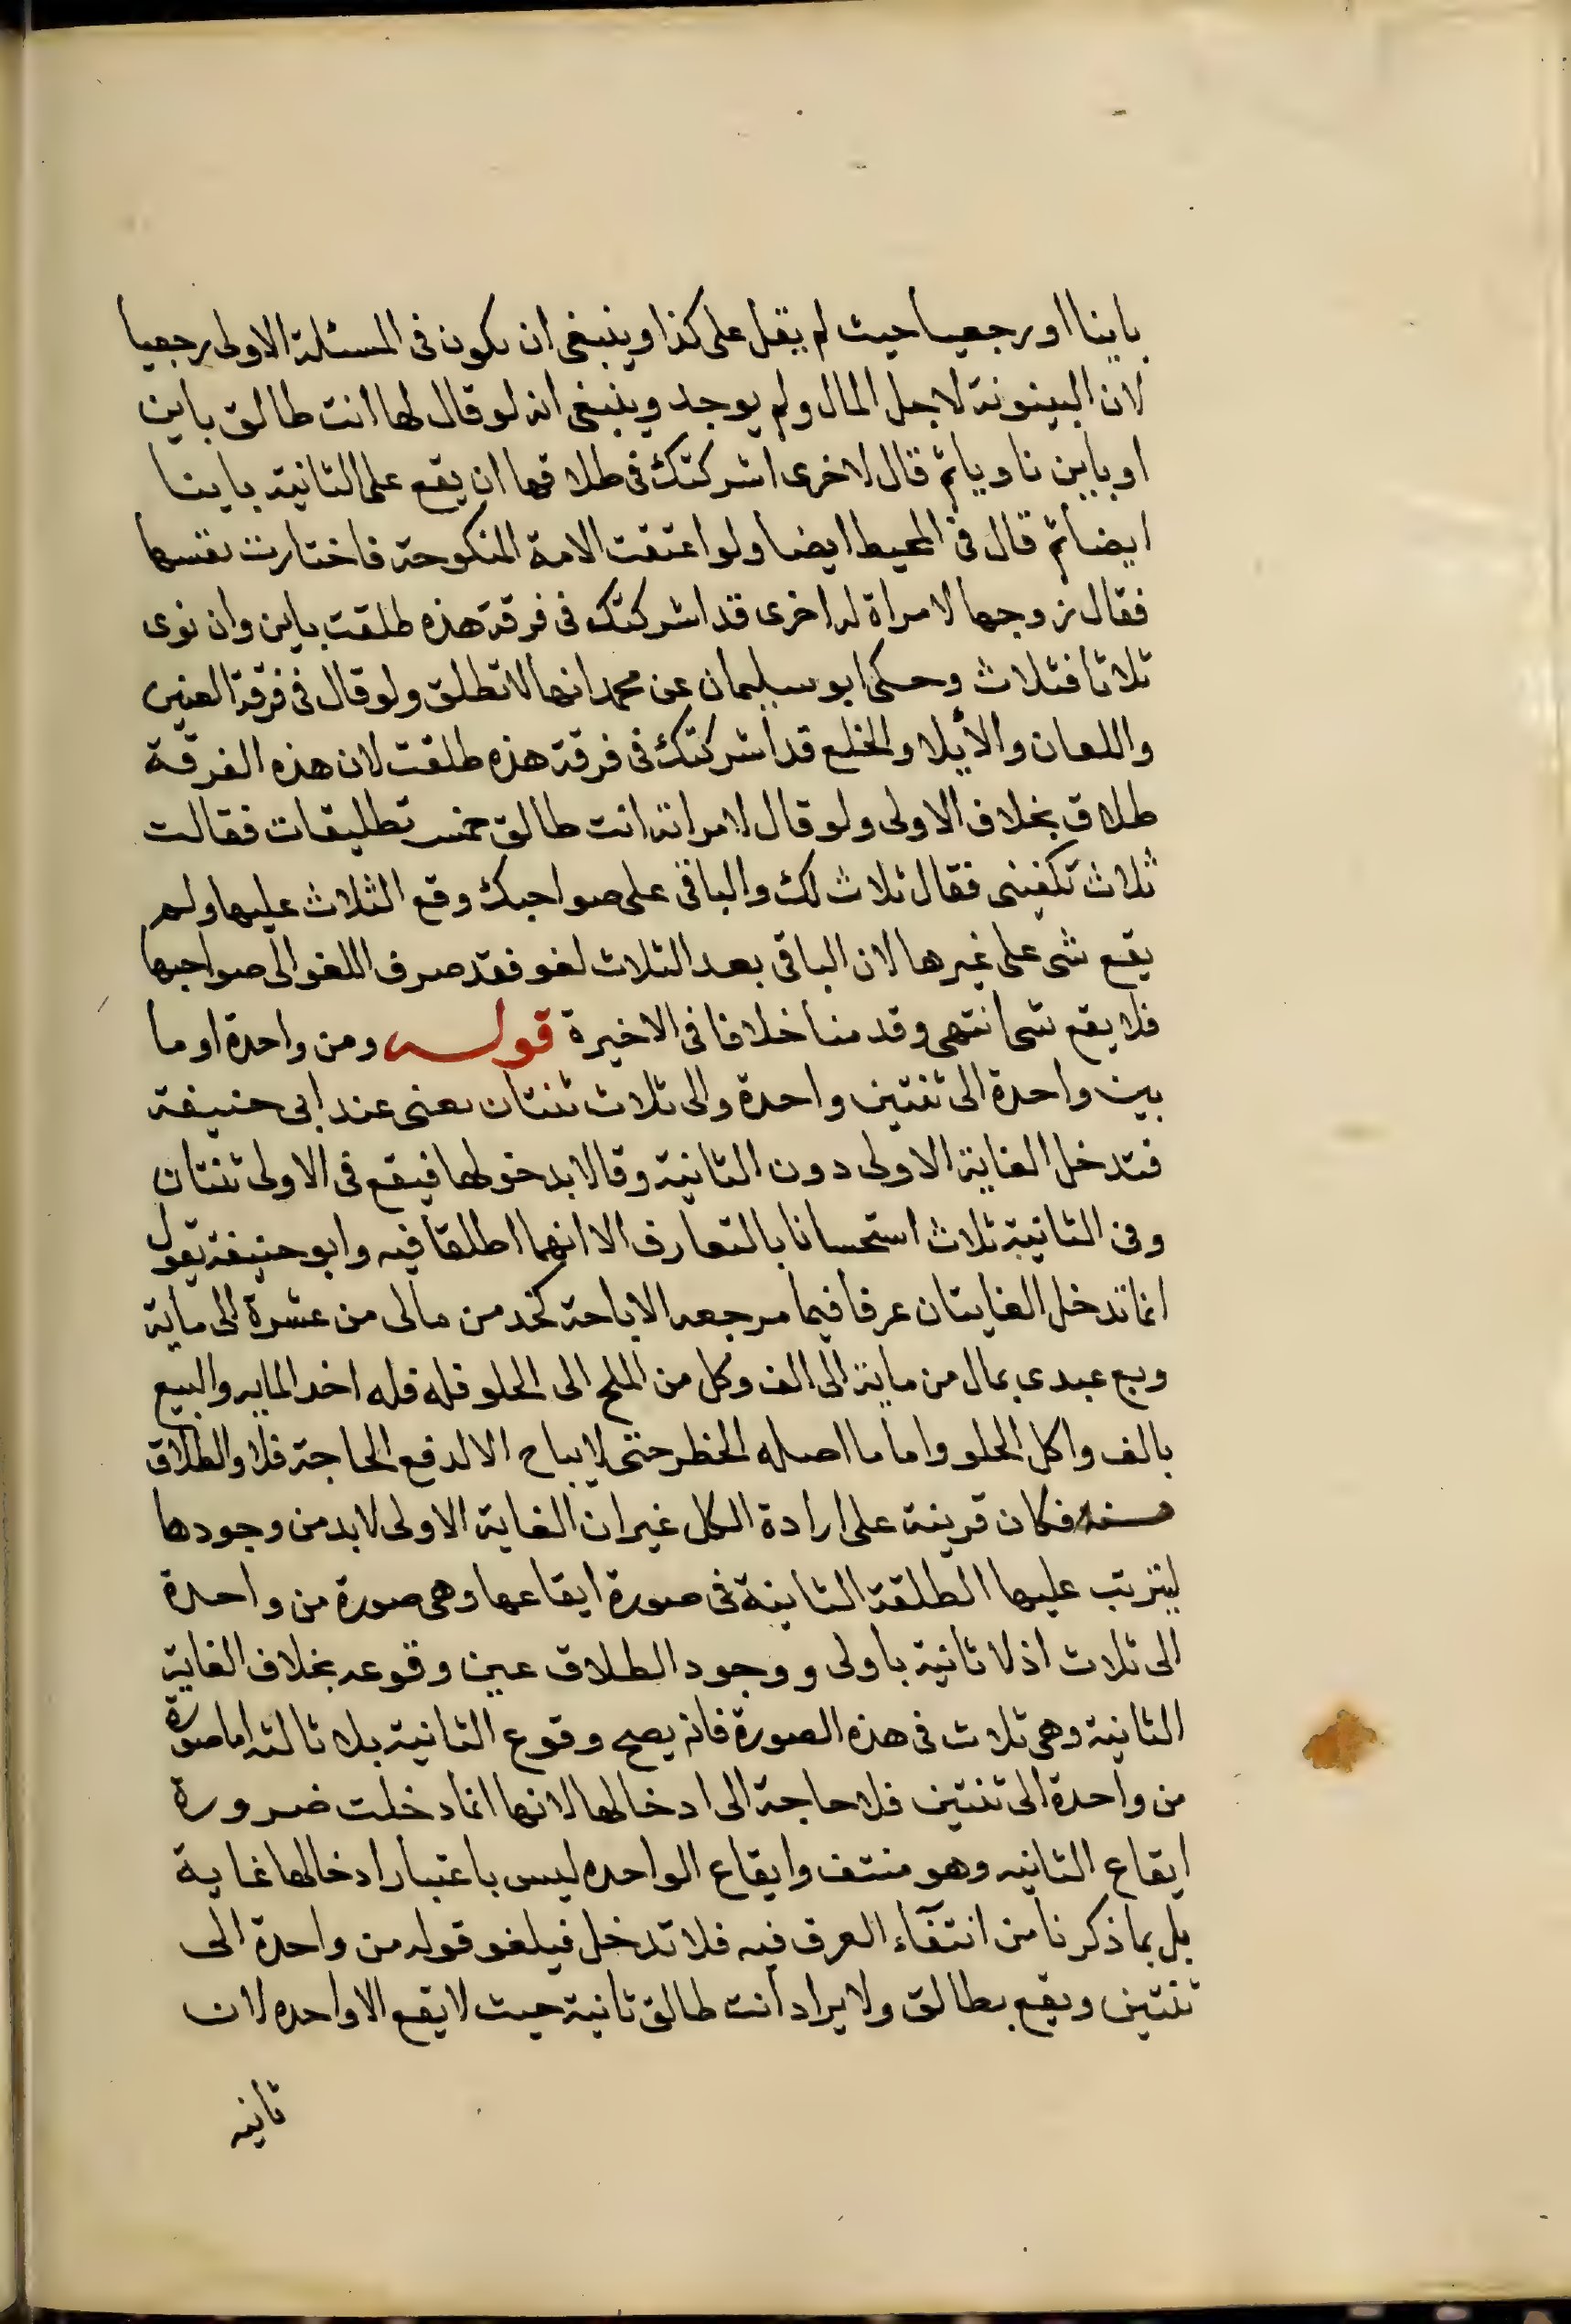 باينا او رجعيا حيث لم يقل على كذا وينبغى ان يكون فى المسئلة الاولى رجعيا
لان البينونة لاجل المال ولم يوجد وينبغى انه لو قال لها انت طالق باين
او باين ناويا ثم قال لاخرى اشركتك فى طلاقها ان يقع على الثانية باينا
ايضا ثم قال فى المحيط ايضا ولو اعتقت الامة المنكوحة فاختارت نفسها
فقال زوجها لامراة له اخرى قد اشركتك فى فرقة هذه طلقت باين وان نوى
ثلاثا فثلاث وحكى ابو سليمان عن محمد انها لا تطلق ولو قال فى فرقة العنين
واللعان والأيلا والخلع قد اشركتك فى فرقة هذه طلقت لان هذه الفرقة
طلاق بخلاف الاولى ولو قال لامراته انت طالق خمس تطليقات فقالت
ثلاث تكفينى فقال ثلاث لك والباقى على صواحبك وقع الثلاث عليها ولم
يقع شى على غيرها لان الباقى بعد الثلاث لغو فقد صرف اللغو الى صواحبها
فلا يقع شى انتهى وقدمنا خلافا فى الاخيرة قوله ومن واحدة او ما
بين واحدة الى ثنتين واحدة والى ثلاث ثنتان يعنى عند ابى حنيفة
فتدخل الغاية الاولى دون الثانية وقالا بدخولها فيقع فى الاولى ثنتان
وفى الثانية ثلاث استحسانا بالتعارف الا انهما اطلقا فيه وابو حنيفة يقول
انما تدخل الغايتان عرفا فيما مرجعه الاباحة كخد من مالى من عشرة الى ماية
وبع عبدى بمال من ماية الى الف وكل من الملح الى الحلو فله فله اخد المايه والبيع
بالف واكل الحلو واما ما اصله الحظر حتى لا يباح الا لدفع الحاجة فلا والطلاق
منه فكان قرينة على ارادة الكل غير ان الغاية الاولى لا بد من وجودها
ليترتب عليها الطلقة الثانية فى صورة ايقاعها وهى صورة من واحدة
الى ثلاث اذ لا ثانية باولى ووجود الطلاق عين وقوعه بخلاف الغاية
الثانية وهى ثلاث فى هذه الصورة فانه يصح وقوع الثانية بلا ثالثه اما صورة
من واحدة الى ثنتين فلا حاجة الى ادخالها لانها انما دخلت ضرورة
ايقاع الثانيه وهو منتف وايقاع الواحده ليس باعتبار ادخالها غاية
بل بما ذكرنا من انتفآء العرف فيه فلا تدخل فيلغو قوله من واحدة الى
ثنتين ويقع بطالق ولا يراد انت طالق ثانية حيث لا يقع الا واحده لان
ثانيه